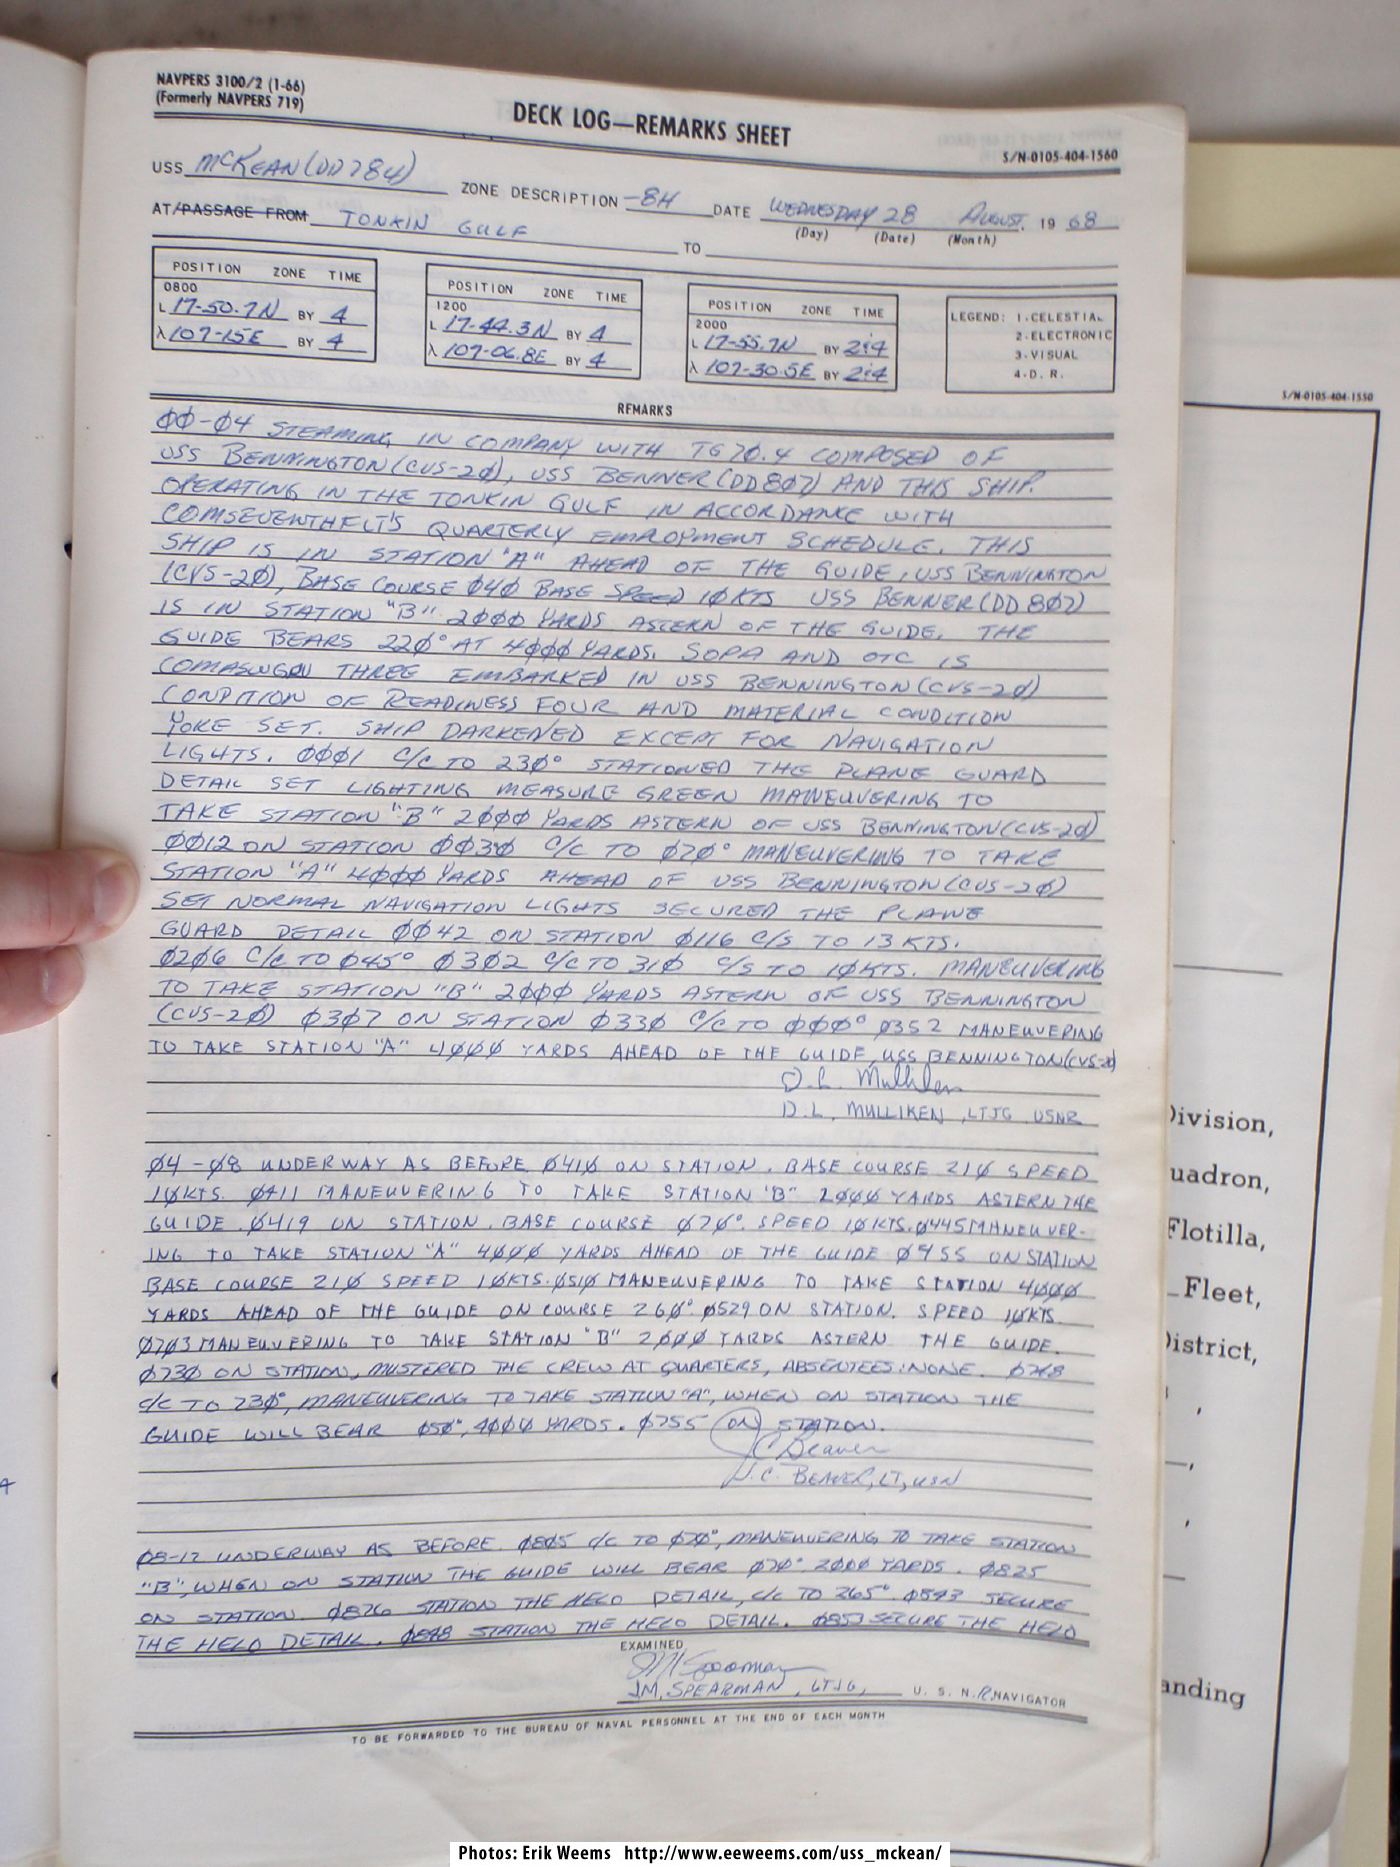 NAVPERS 3100/2 (1-66)
(Formerly NAVPERS 719)
DECK LOG—REMARKS SHEET
S/N-0105-404-1560
USS McKEAN (DD784) ZONE DESCRIPTION -8H DATE WEDNESDAY 28 AUGUST 19 68
(Day) (Date) (Month)
AT/PASSAGE FROM TONKIN GULF TO
POSITION ZONE TIME
0800
L 17-50.7N BY 4
λ 107-15E BY 4
POSITION ZONE TIME
1200
L 17-44.3N BY 4
λ 107-06.8E BY 4
POSITION ZONE TIME
2000
L 17-55.7N BY 2:4
λ 107-30.5E BY 2:4
LEGEND: 1.CELESTIAL
2.ELECTRONIC
3.VISUAL
4.D.R.
REMARKS
00-04 STEAMING IN COMPANY WITH TG 70.4 COMPOSED OF
USS BENNINGTON (CVS-20), USS BENNER (DD 807) AND THIS SHIP.
OPERATING IN THE TONKIN GULF IN ACCORDANCE WITH
COMSEVENTHFLT'S QUARTERLY EMPLOYMENT SCHEDULE. THIS
SHIP IS IN STATION "A" AHEAD OF THE GUIDE, USS BENNINGTON
(CVS-20), BASE COURSE 040 BASE SPEED 10KTS USS BENNER (DD 807)
IS IN STATION "B" 2000 YARDS ASTERN OF THE GUIDE. THE
GUIDE BEARS 220° AT 4000 YARDS. SOPA AND OTC IS
COMASWGRU THREE EMBARKED IN USS BENNINGTON (CVS-20)
CONDITION OF READINESS FOUR AND MATERIAL CONDITION
YOKE SET. SHIP DARKENED EXCEPT FOR NAVIGATION
LIGHTS. 0001 C/C TO 230° STATIONED THE PLANE GUARD
DETAIL SET LIGHTING MEASURE GREEN MANEUVERING TO
TAKE STATION "B" 2000 YARDS ASTERN OF USS BENNINGTON (CVS-20)
0012 ON STATION 0030 C/C TO 070° MANEUVERING TO TAKE
STATION "A" 4000 YARDS AHEAD OF USS BENNINGTON (CVS-20)
SET NORMAL NAVIGATION LIGHTS SECURED THE PLANE
GUARD DETAIL 0042 ON STATION 0116 C/S TO 13 KTS.
0206 C/C TO 045° 0302 C/C TO 310 C/S TO 10KTS. MANEUVERING
TO TAKE STATION "B" 2000 YARDS ASTERN OF USS BENNINGTON
(CVS-20) 0307 ON STATION 0330 C/C TO 000° 0352 MANEUVERING
TO TAKE STATION "A" 4000 YARDS AHEAD OF THE GUIDE, USS BENNINGTON (CVS-20)
D. L. Mulliken
D.L. MULLIKEN, LTJG USNR
04-08 UNDERWAY AS BEFORE. 0410 ON STATION. BASE COURSE 210 SPEED
10KTS. 0411 MANEUVERING TO TAKE STATION "B" 2000 YARDS ASTERN THE
GUIDE. 0419 ON STATION. BASE COURSE 070°. SPEED 10KTS. 0445 MANEUVER-
ING TO TAKE STATION "A" 4000 YARDS AHEAD OF THE GUIDE 0455 ON STATION
BASE COURSE 210 SPEED 10KTS. 0510 MANEUVERING TO TAKE STATION 4000
YARDS AHEAD OF THE GUIDE ON COURSE 260°. 0529 ON STATION. SPEED 10KTS.
0703 MANEUVERING TO TAKE STATION "B" 2000 YARDS ASTERN THE GUIDE.
0730 ON STATION, MUSTERED THE CREW AT QUARTERS, ABSENTEES: NONE. 0748
C/C TO 230°, MANEUVERING TO TAKE STATION "A", WHEN ON STATION THE
GUIDE WILL BEAR 050°, 4000 YARDS. 0755 ON STATION.
JC Beaver
J.C. BEAVER, LT, USN
08-12 UNDERWAY AS BEFORE. 0805 C/C TO 070°, MANEUVERING TO TAKE STATION
"B", WHEN ON STATION THE GUIDE WILL BEAR 070° 2000 YARDS. 0825
ON STATION. 0826 STATION THE HELO DETAIL, C/C TO 265°. 0843 SECURE
THE HELO DETAIL. 0848 STATION THE HELO DETAIL. 0853 SECURE THE HELO
EXAMINED
JM Spearman
J.M. SPEARMAN, LTJG, U. S. N. R. NAVIGATOR
TO BE FORWARDED TO THE BUREAU OF NAVAL PERSONNEL AT THE END OF EACH MONTH
S/N-0105-404-1550
Division,
uadron,
Flotilla,
Fleet,
District,
anding
Photos: Erik Weems http://www.eeweems.com/uss_mckean/